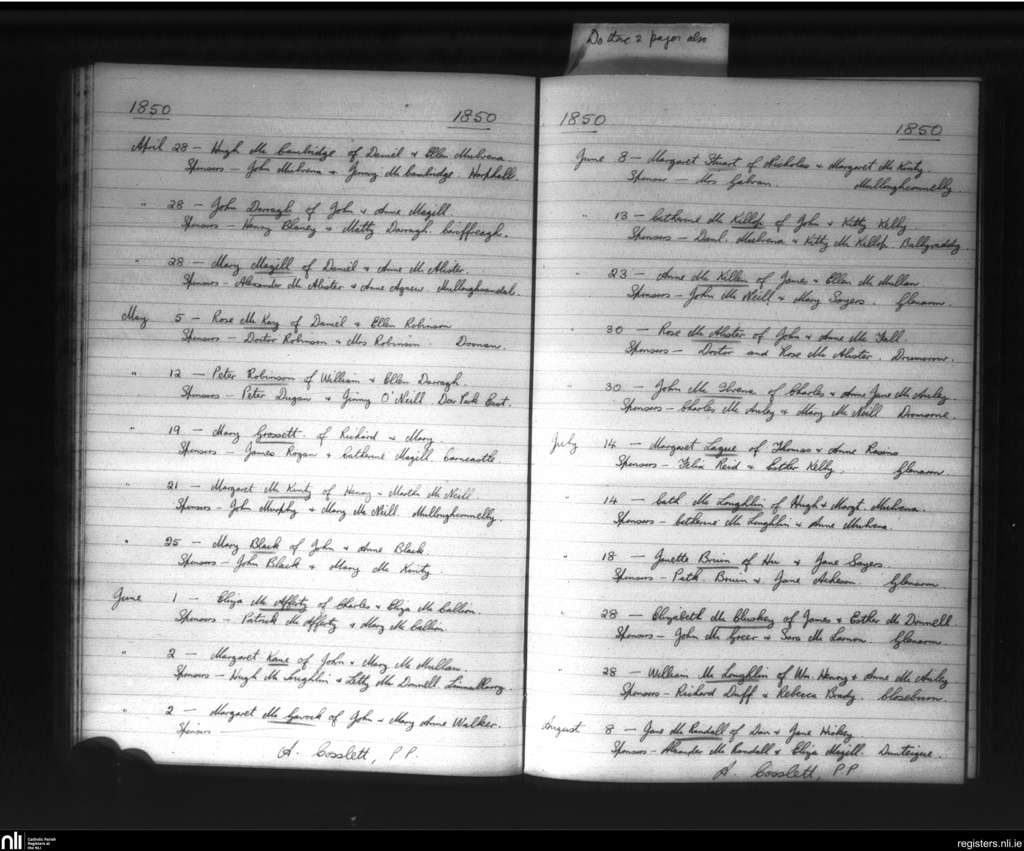 Do these 2 pages also
1850 1850
April 28 - Hugh Mc Cambridge of Daniel & Ellen Mulvena.
Sponsors - John Mulvena & Jinny Mc Cambridge Harphall.
" 28 - John Darragh of John & Anne Magill.
Sponsors - Henry Blaney & Matty Darragh.
" 28 - Mary Magill of Daniel & Anne Mc Alister.
Sponsors - Alexander Mc Alister & Anne Agnew. Mulloughsandal.
May 5 - Rose Mc Kay of Daniel & Ellen Robinson
Sponsors - Doctor Robinson & Mrs Robinson. Doonan.
" 12 - Peter Robinson of William & Ellen Darragh.
Sponsors - Peter Dugan & Jinny O'Neill. Deer Park East.
" 19 - Mary Grossett. of Richard & Mary.
Sponsors - James Rogan & Catherine Magill. Carncastle.
" 21 - Margaret Mc Kinty of Henry & Martha Mc Neill.
Sponsors - John Murphy & Mary Mc Neill. Mulloughconnelly.
" 25 - Mary Black of John & Anne Black.
Sponsors - John Black & Mary Mc Kinty.
June 1 - Eliza Mc Afferty of Charles & Eliza Mc Callion.
Sponsors - Patrick Mc Afferty & Mary Mc Callion.
" 2 - Margaret Kane of John & Mary Mc Mullan.
Sponsors - Hugh Mc Loughlin & Letty Mc Donnell
" 2 - Margaret Mc Gavock of John & Mary Anne Walker.
Sponsors
A. Cosslett, P.P.
1850 1850
June 8 - Margaret Stuart of Nicholas & Margaret Mc Kinty.
Sponsor - Mrs Galvan. Mulloughconnelly.
" 13 - Catherine Mc Killop of John & Kitty Kelly
Sponsors - Danl. Mulvena & Kitty Mc Killop. Ballyvaddy.
" 23 - Anne Mc Killen of James & Ellen Mc Mullan
Sponsors - John Mc Neill & Mary Sayers. Glenarm.
" 30 - Rose Mc Alister of John & Anne Mc Fall.
Sponsors - Doctor and Rose Mc Alister.
" 30 - John Mc Ilvena of Charles & Anne Jane Mc Auley.
Sponsors - Charles Mc Auley & Mary Mc Neill
July 14 - Margaret Lague of Thomas & Anne
Sponsors - Felix Reid & Esther Kelly. Glenarm.
14 - Cath Mc Loughlin of Hugh & Margt. Mulvena.
Sponsors - Catherine Mc Loughlin & Anne Mulvena.
" 18 - Jinette Bruin of Hu & Jane Sayers.
Sponsors - Patk. Bruin & Jane Glenarm.
28 - Elizabeth Mc Cluskey of James & Esther Mc Donnell.
Sponsors - John Mc Greer & Sara Mc Larnon. Glenarm.
" 28 - William Mc Loughlin of Wm. Henry & Anne Mc Auley.
Sponsors - Richard Duff & Rebecca Brady. Closeburn.
August 8 - Jane Mc Randall of Dan & Jane Hickey.
Sponsors - Alexander Mc Randall & Eliza Magill. Dunteigue.
A. Cosslett, P.P.
nli
Catholic Parish
Registers at
the NLI
registers.nli.ie